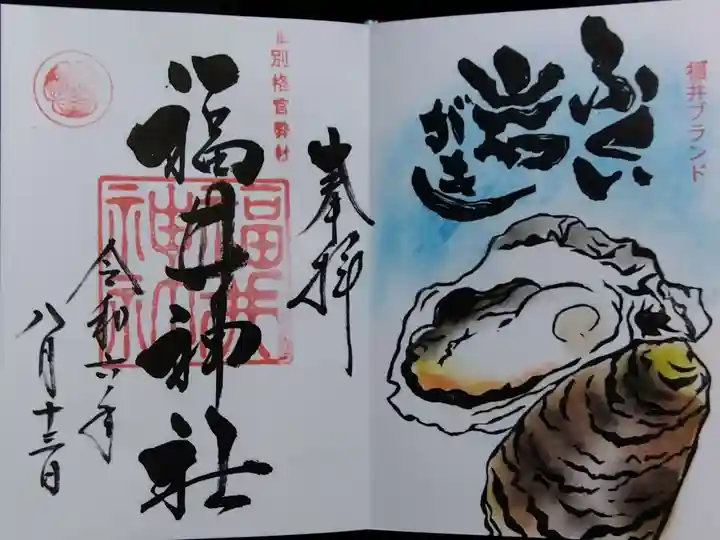 福井ブランド
ふくい
岩
がき
別格官幣社
奉拝
福井神社
福井神社
令和六年
八月十三日